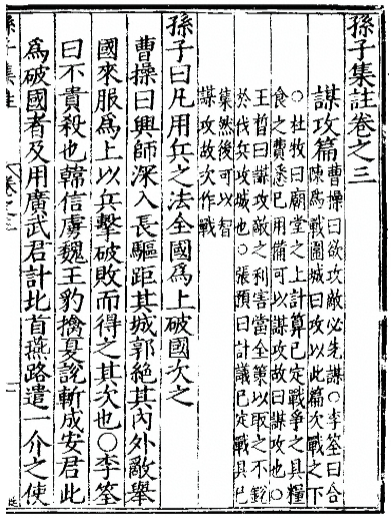 孫子集註卷之三
謀攻篇
曹操曰欲攻敵必先謀○李筌曰合
陳爲戰圍城曰攻以此篇次戰之下
○杜牧曰廟堂之上計算已定戰爭之具糧
食之費悉已用備可以謀攻故曰謀攻也○
王晳曰謀攻敵之利害當全策以取之不銳
於伐兵攻城也○張預曰計議已定戰具已
集然後可以智
謀攻故次作戰
孫子曰凡用兵之法全國爲上破國次之
曹操曰興師深入長驅距其城郭絕其內外敵舉
國來服爲上以兵擊破敗而得之其次也○李筌
曰不貴殺也韓信虜魏王豹擒夏說斬成安君此
爲破國者及用廣武君計北首燕路遣一介之使
孫子集註
卷之三
一